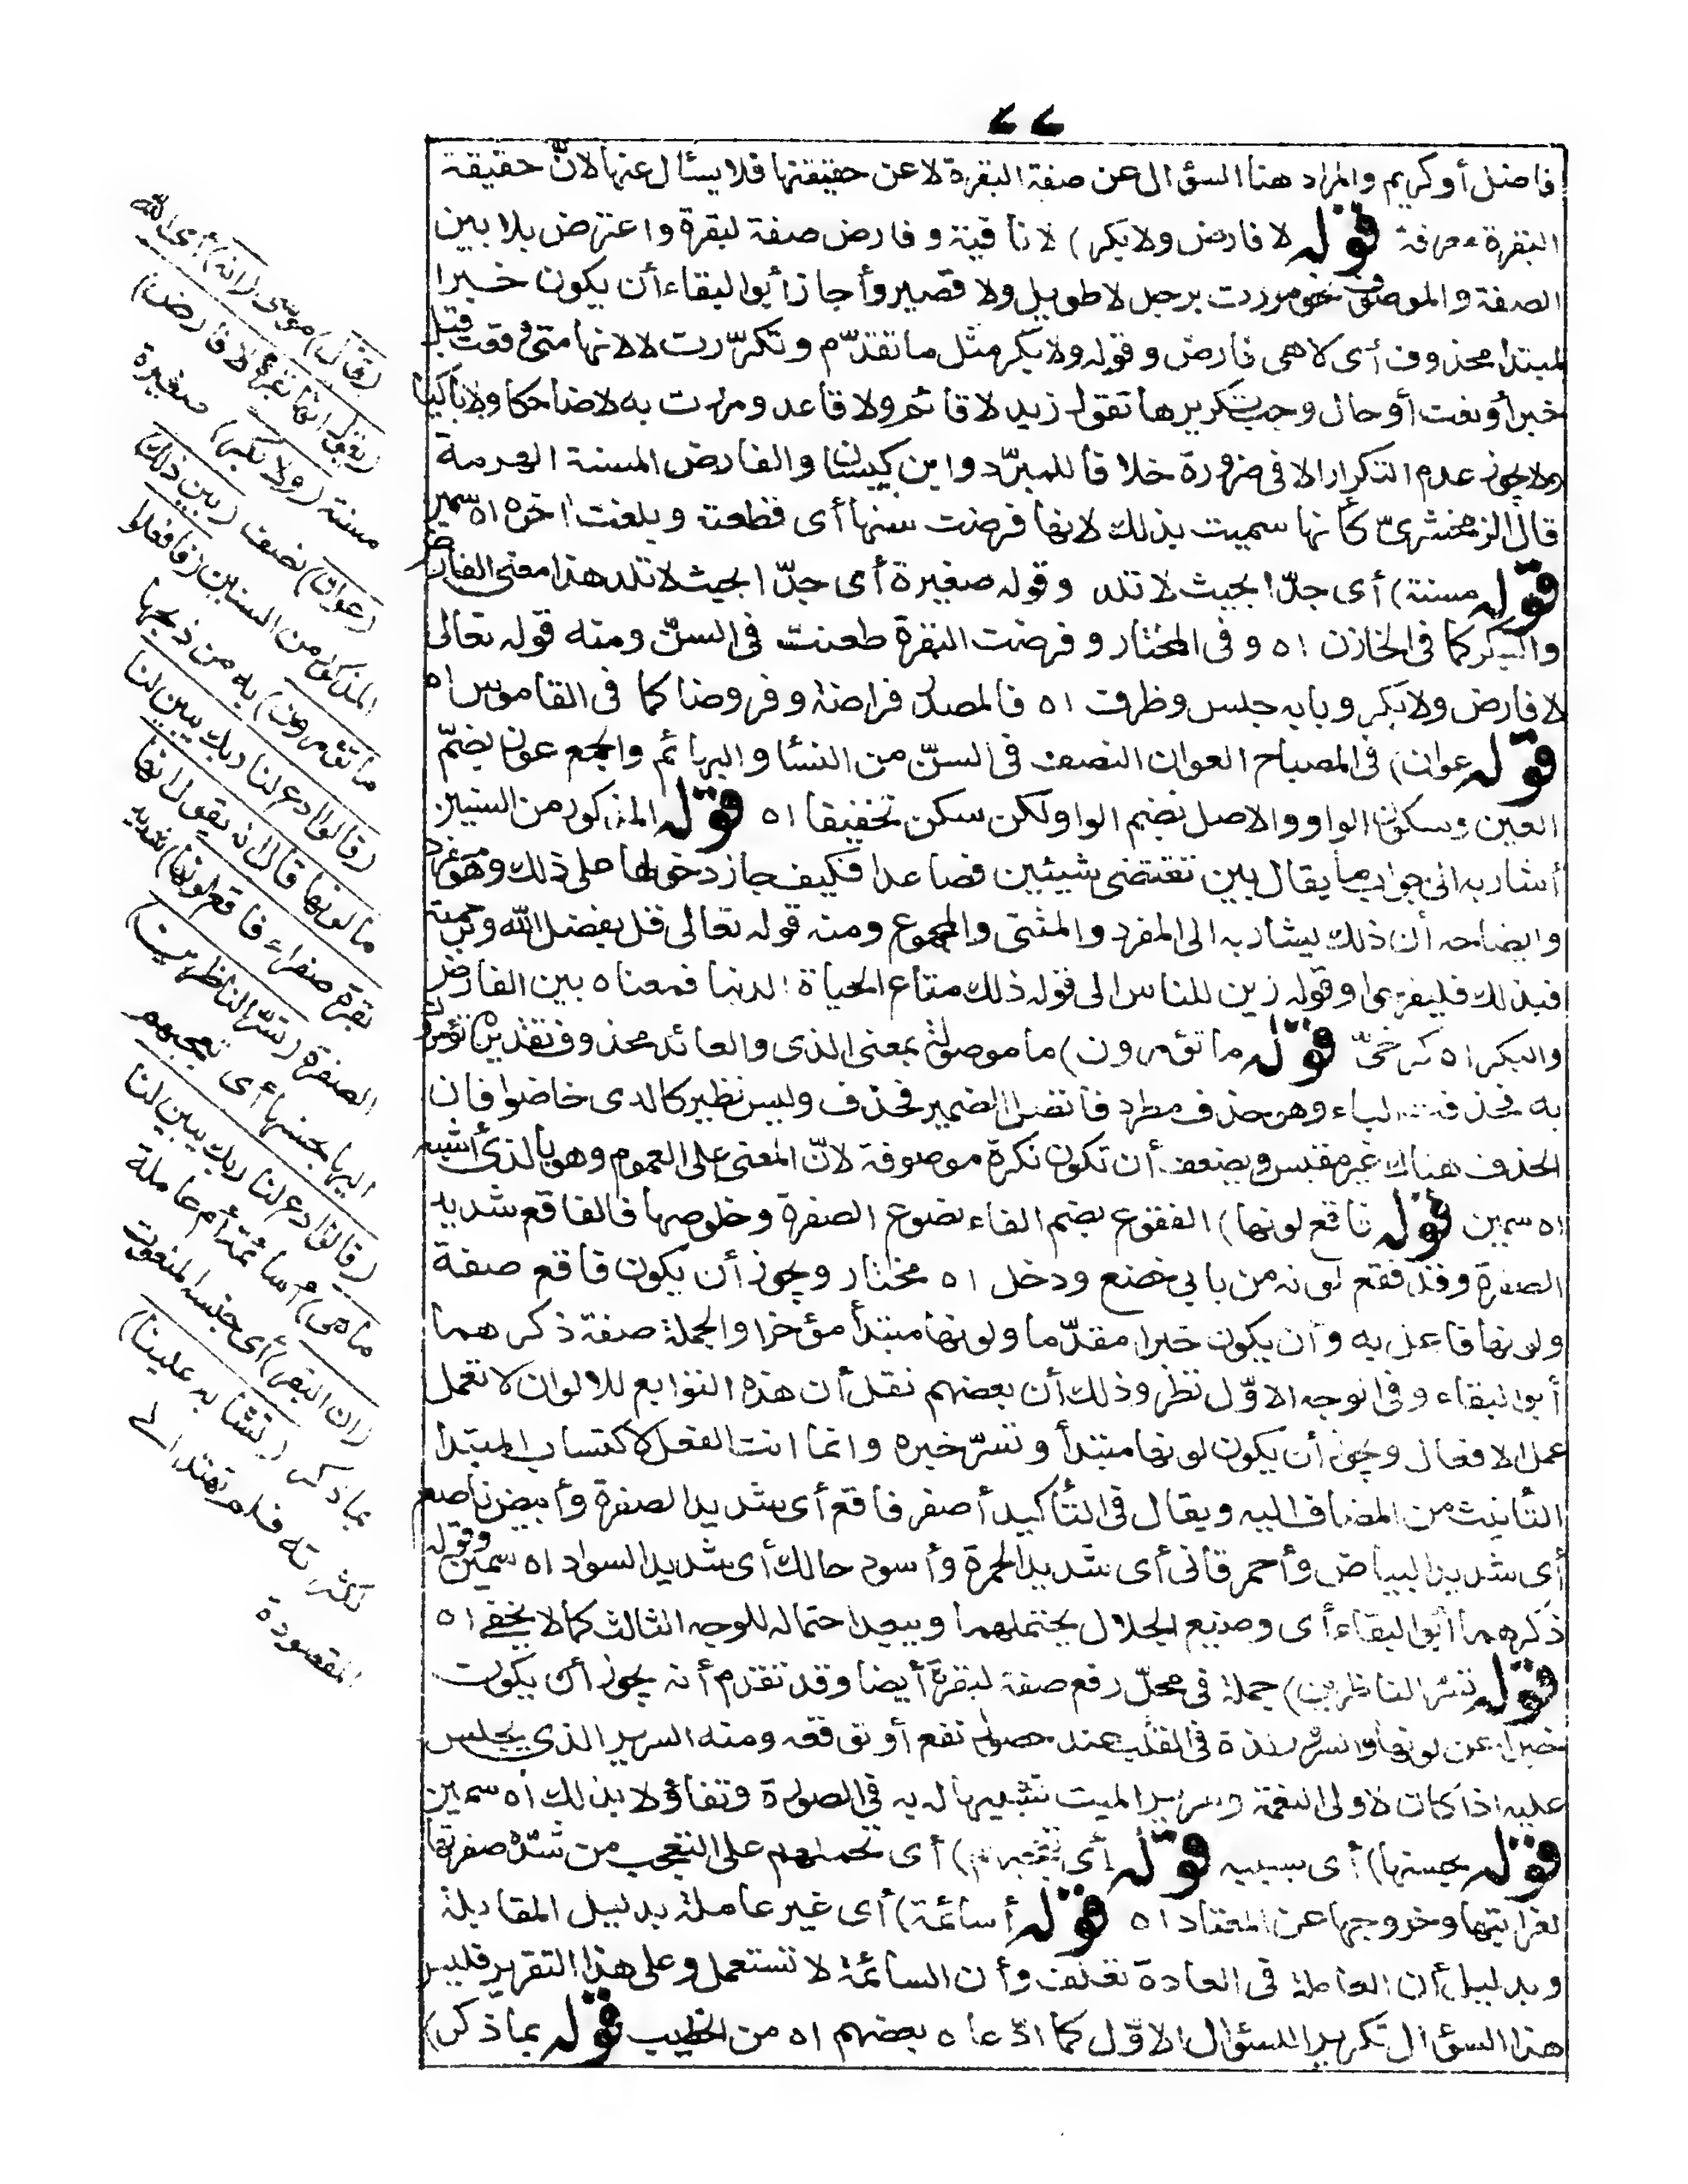 ٦٦
فاضل أو كريم والمراد هنا السؤال عن صفة البقرة لا عن حقيقتها فلا يسئال عنها لانّ حقيقة
البقرة معرفة قوله لا فارض ولا بكر) لا نافية وفارض صفة لبقرة واعترض بلا بين
الصفة والموصوف نحو مررت برجل لا طويل ولا قصير وأجاز أبو البقاء أن يكون خبرا
لمبتدا محذوف أى لا هى فارض وقوله ولا بكر مثل ما تقدّم وتكرّرت لا لانها متى وقعت قبل
خبر أو نعت أو حال وجب تكريرها تقول زيد لا قائم ولا قاعد ومررت به لا ضاحكا ولا باكيا
ولا يجوز عدم التكرار الا فى ضرورة خلافا للمبرّد وابن كيسان والفارض المسنة الهرمة
قال الزمخشرىّ كأنها سميت بذلك لانها فرضت سنها أى قطعته وبلغت اخره اه سمين
قوله مسنة) أى جدّا بحيث لا تلد وقوله صغيرة أى جدّا بحيث لا تلد هذا معنى الفارض
والبكر كما فى الخازن اه وفى المختار وفرضت البقرة طعنت فى السنّ ومنه قوله تعالى
لا فارض ولا بكر وبابه جلس وظرف اه فالمصدر فراضة وفروضا كما فى القاموس اه
قوله عوان) فى المصباح العوان النصف فى السنّ من النسا والبهائم والجمع عون بضمّ
العين وسكون الواو والاصل بضم الواو لكن سكن تخفيفا اه قوله المذكور من السنين
أشار به الى جواب ما يقال بين تقتضى شيئين فصاعدا فكيف جاز دخولها على ذلك وهو مفرد
وايضاحه أن ذلك يشار به الى المفرد والمثنى والمجموع ومنه قوله تعالى قل بفضل الله وبرحمته
فبذلك فليفرحوا وقوله زين للناس الى قوله ذلك متاع الحياة الدنيا فمعناه بين الفارض
والبكر اه كرخىّ قوله ما تؤمرون) ما موصولة بمعنى الذى والعائد محذوف تقديره تؤمرون
به فحذفت الباء وهو حذف مطرد فاتصل الضمير فحذف وليس نظير كالذى خاضوا فان
الحذف هناك غير مقيس ويضعف أن تكون نكرة موصوفة لانّ المعنى على العموم وهو بالذى أشبه
اه سمين قوله فاقع لونها) الفقوع بضم الفاء نصوع الصفرة وخلوصها فالفاقع شديد
الصفرة وقد فقع لونه من بابى خضع ودخل اه مختار ويجوز أن يكون فاقع صفة
ولونها فاعل به وأن يكون خبرا مقدّما ولونها مبتدأ مؤخرا والجملة صفة ذكرهما
أبو البقاء وفى الوجه الاوّل نظر وذلك أن بعضهم نقل أن هذه التوابع للالوان لا تعمل
عمل الافعال ويجوز أن يكون لونها مبتدأ وتسرّ خبره وانما انث الفعل لاكتساب المبتدا
التأنيث من المضاف اليه ويقال فى التأكيد أصفر فاقع أى شديد الصفرة وأبيض ناصع
أى شديد البياض وأحمر قانى أى شديد الحمرة وأسود حالك أى شديد السواد اه سمين وقوله
ذكرهما أبو البقاء أى وصنيع الجلال يحتملهما ويبعد احتماله للوجه الثالث كما لا يخفى اه
قوله تسرّ الناظرين) جملة فى محلّ رفع صفة لبقرة أيضا وقد تقدّم أنه يجوز أن يكون
خبرا عن لونها والسرور لذة فى القلب عند حصول نفع أو توقعه ومنه السرير الذى يجلس
عليه اذا كان لاولى النعمة وسرير الميت تشبيها له به فى الصورة وتفاؤلا بذلك اه سمين
قوله بحسنها) أى بسببه قوله أى تعجبهم) أى تحملهم على التعجب من شدّة صفرتها
لغرابتها وخروجها عن المعتاد اه قوله أسائمة) أى غير عاملة بدليل المقابلة
وبدليل أن العاملة فى العادة تعلف وأن السائمة لا تستعمل وعلى هذا التقرير فليس
هذا السؤال تكريرا للسؤال الاوّل كما ادّعاه بعضهم اه من الخطيب قوله بما ذكر)
(فقال) موسى (انه) أى الله
(يقول انها بقرة لا فارض)
مسنة (ولا بكر) صغيرة
(عوان) نصف (بين ذلك)
المذكور من السنين (فافعلوا
ما تؤمرون) به من ذبحها
(قالوا ادع لنا ربك يبين لنا
ما لونها قال انه يقول انها
بقرة صفراء فاقع لونها) شديد
الصفرة (تسرّ الناظرين)
اليها بحسنها أى تعجبهم
(قالوا ادع لنا ربك يبين لنا
ما هى) أسائمة أم عاملة
(ان البقر) أى جنسه المنعوت
بما ذكر (تشابه علينا)
لكثرته فلم نهتد الى
المقصودة